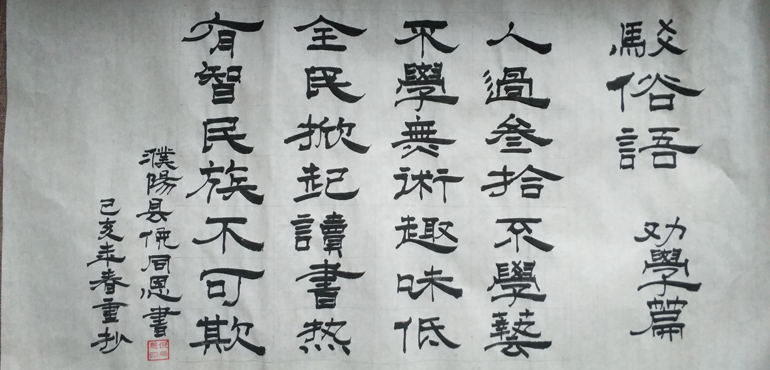 駮俗語 劝學篇
人過叁拾不學藝
不學無術趣味低
全民掀起讀書热
有智民族不可欺
濮陽县同恩書
己亥年春重抄